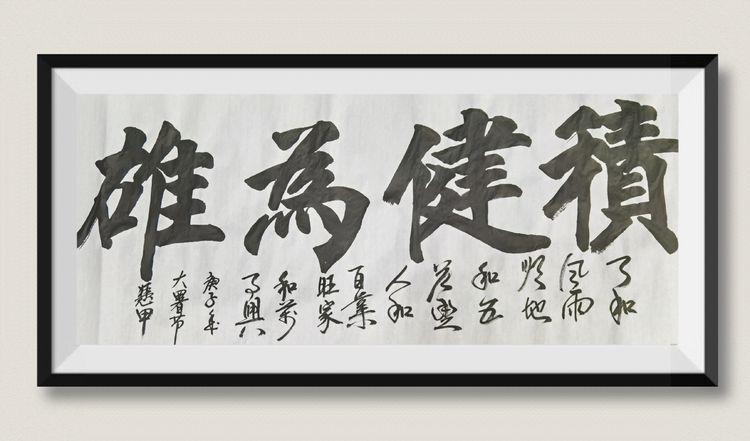 積健為雄
天和
风雨
顺地
和五
谷豐
人和
百業
旺家
和萬
事興
庚子年
大暑节